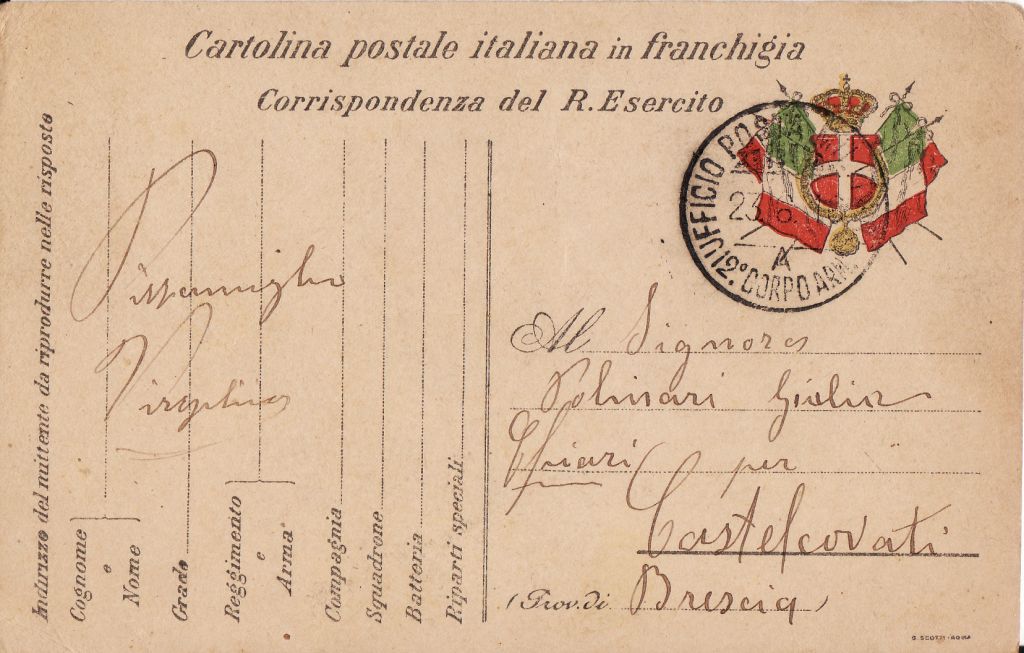 Cartolina postale italiana in franchigia
Corrispondenza del R. Esercito
Indirizzo del mittente da riprodurre nelle risposte
Cognome
e
Nome
Grado
Reggimento
e
Arma
Compagnia
Squadrone
Batteria
Riparti speciali
Virgilio
UFFICIO POSTA
23
A
12º CORPO ARM
Al Signora
Polinari Giulia
Chiari per
Castelcovati
(Prov. di Brescia)
G. SCOTTI - ROMA